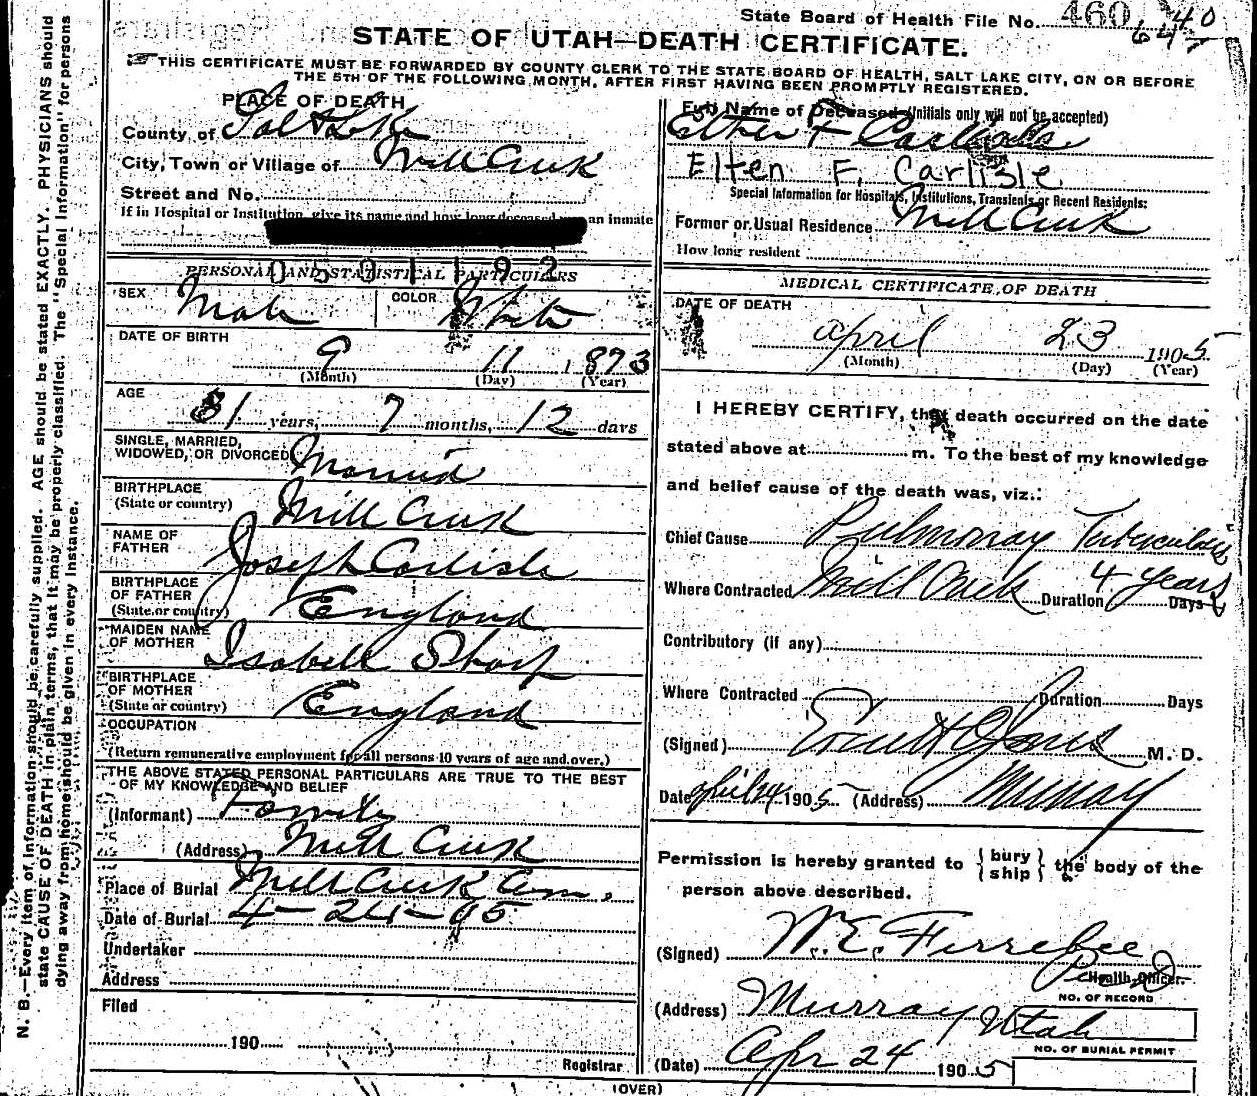 State Board of Health File No. 460
STATE OF UTAH—DEATH CERTIFICATE.
THIS CERTIFICATE MUST BE FORWARDED BY COUNTY CLERK TO THE STATE BOARD OF HEALTH, SALT LAKE CITY, ON OR BEFORE
THE 5TH OF THE FOLLOWING MONTH, AFTER FIRST HAVING BEEN PROMPTLY REGISTERED.
PLACE OF DEATH
County of Salt Lake
City, Town or Village of Mill Creek
Street and No.
If in Hospital or Institution, give its name and how long deceased an inmate
PERSONAL AND STATISTICAL PARTICULARS
SEX Male COLOR White
DATE OF BIRTH
9 11 1873
(Month) (Day) (Year)
AGE
31 years, 7 months, 12 days
SINGLE, MARRIED,
WIDOWED, OR DIVORCED Married
BIRTHPLACE
(State or country) Mill Creek
NAME OF
FATHER Joseph Carlisle
BIRTHPLACE
OF FATHER
(State or country) England
MAIDEN NAME
OF MOTHER Isabell Sharp
BIRTHPLACE
OF MOTHER
(State or country) England
OCCUPATION
(Return remunerative employment for all persons 10 years of age and over.)
THE ABOVE STATED PERSONAL PARTICULARS ARE TRUE TO THE BEST
OF MY KNOWLEDGE AND BELIEF
(Informant) Family
(Address) Mill Creek
Place of Burial Mill Creek Cem.
Date of Burial 4-24-05
Undertaker
Address
Filed
190
Registrar
Full Name of Deceased (Initials only will not be accepted)
Elten F Carlisle
Elten F. Carlisle
Special Information for Hospitals, Institutions, Transients or Recent Residents:
Former or Usual Residence Mill Creek
How long resident
MEDICAL CERTIFICATE OF DEATH
DATE OF DEATH
April 23 1905
(Month) (Day) (Year)
I HEREBY CERTIFY, that death occurred on the date
stated above at m. To the best of my knowledge
and belief cause of the death was, viz.:
Chief Cause Pulmonay Tuberculosis
Where Contracted Mill Creek Duration 4 years Days
Contributory (if any)
Where Contracted Duration Days
(Signed) Jones M. D.
Date April 24 1905 (Address) Murray
Permission is hereby granted to { bury ship } the body of the
person above described.
(Signed) W. E. Ferrebee
Health Officer.
(Address) Murray Utah
NO. OF RECORD
NO. OF BURIAL PERMIT
(Date) Apr 24 1905
(OVER)
N. B.—Every item of information should be carefully supplied. AGE should be stated EXACTLY. PHYSICIANS should
state CAUSE OF DEATH in plain terms, that it may be properly classified. The "Special Information" for persons
dying away from home should be given in every instance.